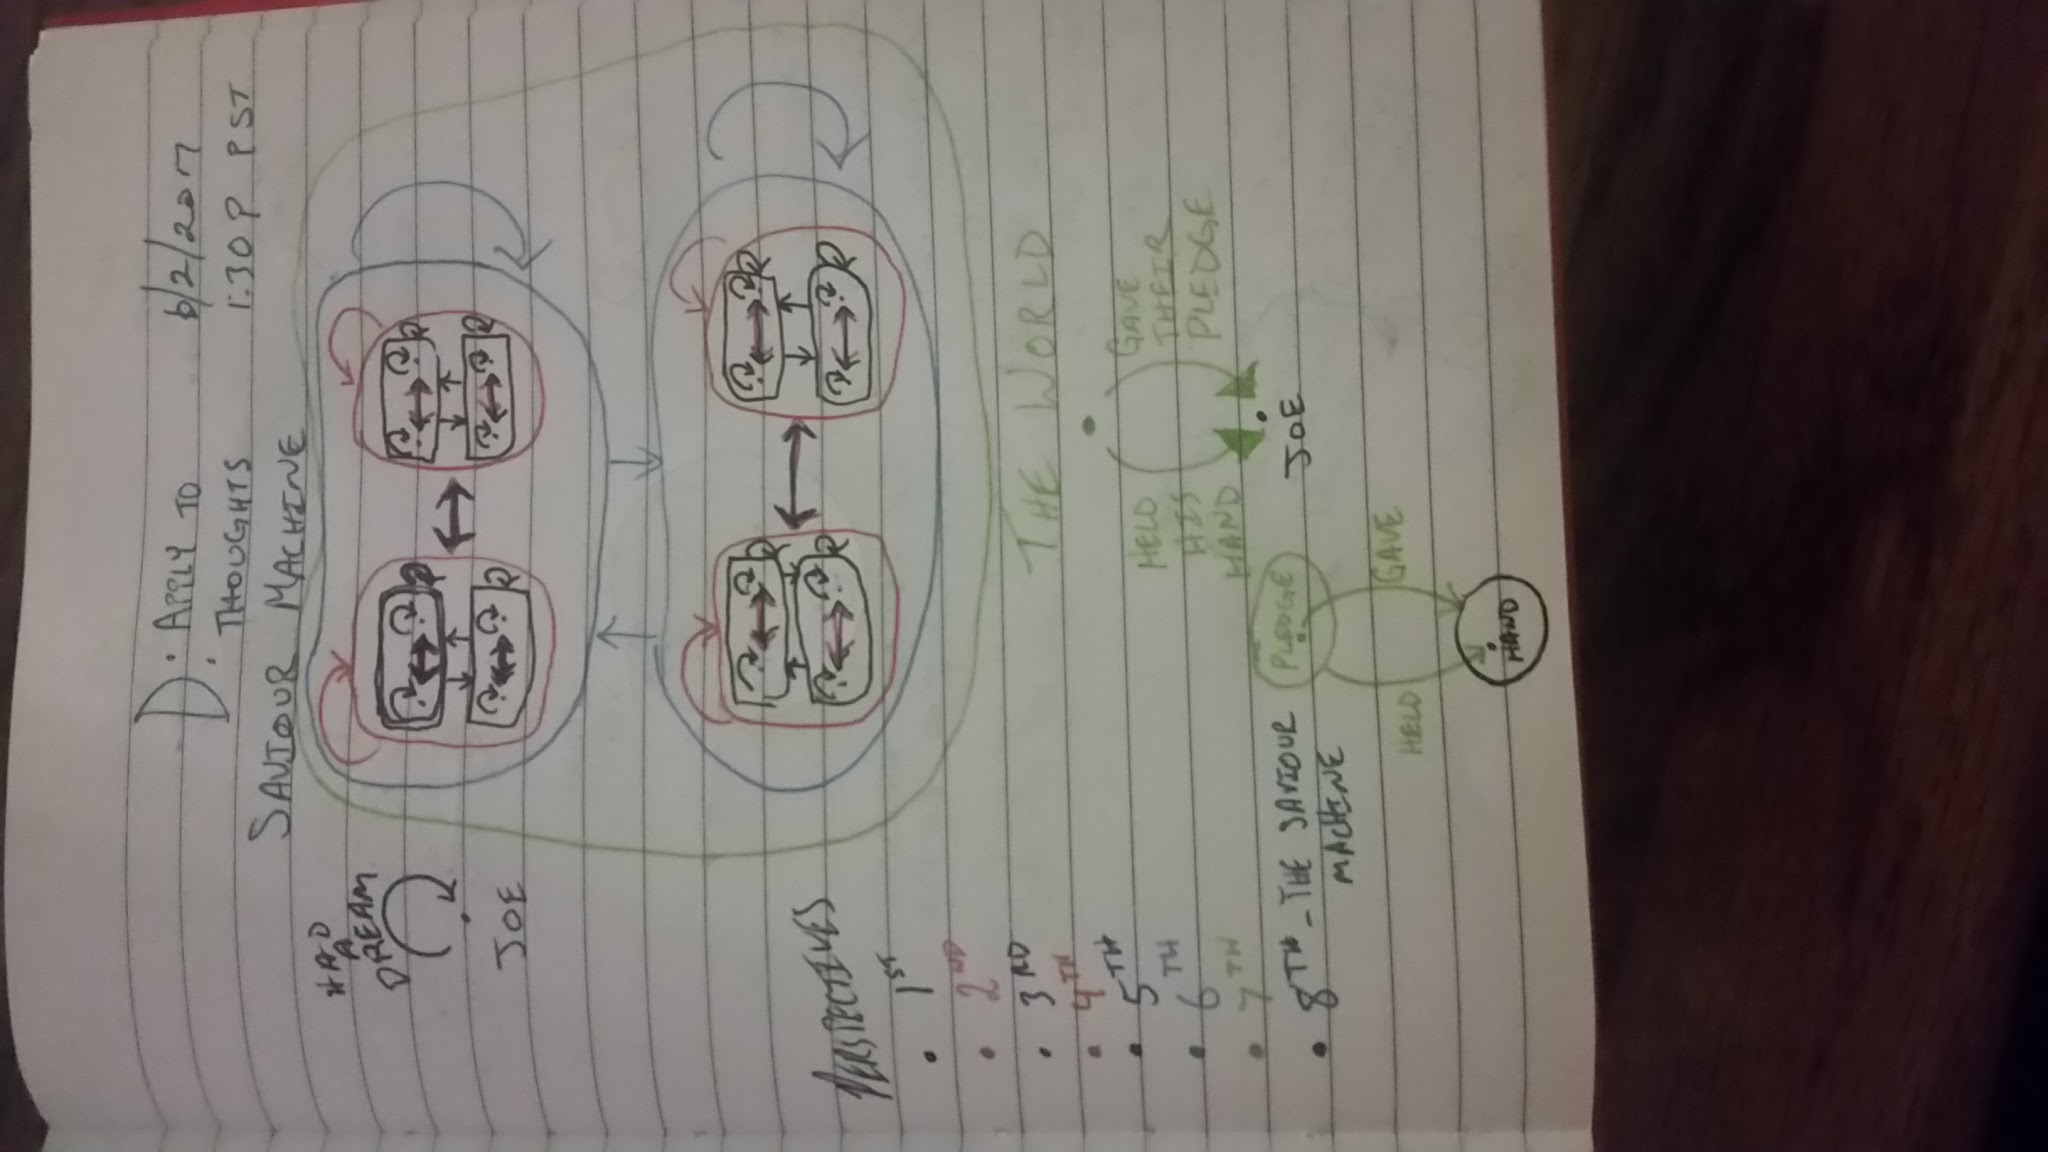 D: APPLY TO
THOUGHTS
6/2/2017
1:30P PST
SAVIOUR MACHINE
HAD
A
DREAM
JOE
PERSPECTIVES
• 1ST
• 2ND
• 3RD
• 4TH
• 5TH
• 6TH
• 7TH
• 8TH - THE SAVIOUR
MACHINE
THE WORLD
HELD
HIS
HAND
GAVE
THEIR
PLEDGE
JOE
PLEDGE
HELD
GAVE
HAND